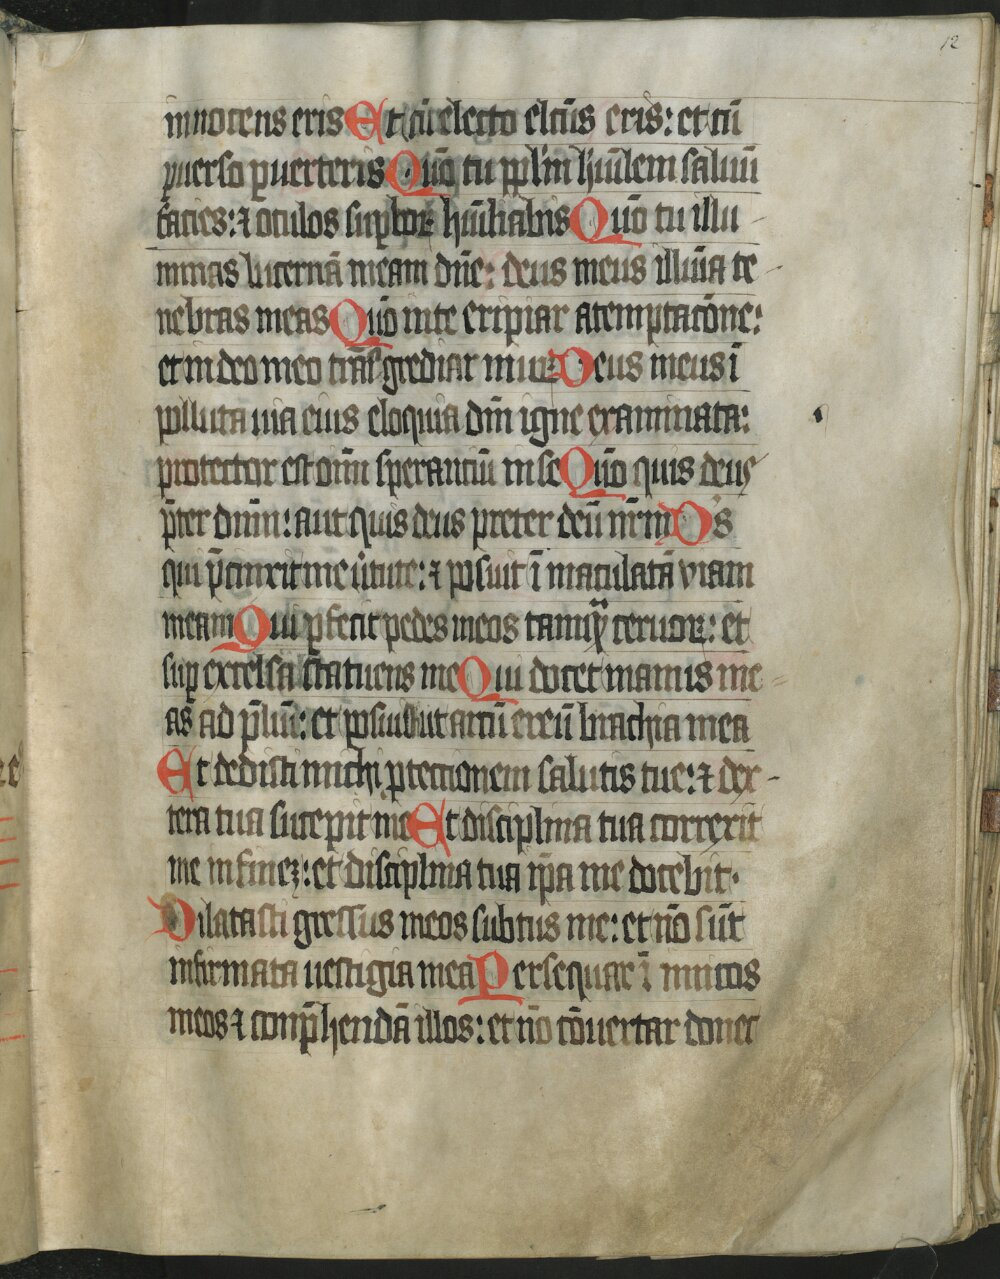 12
innocens eris Et cū electo elcūs eris: et cū
ꝑuerso ꝑuerteris Qm̄o tu ppl̄m hūilem saluū
facies: ⁊ oculos suꝑboꝝ hūiliabis Qūo tu illu
minas lucernā meam dn̄e: deus meus illūia te
nebras meas Qūo in te eripiar a temptacōne:
et in deo meo trāsgrediar muꝝ Deus meus ī
polluta uia eius eloquia dn̄i igne examinata:
protector est om̄i sperantiū in se Qūo quis deus
p̄ter dn̄m: aut quis deus preter deū nr̄m Ds
qui p̄cinxit me ūtute: ⁊ posuit ī maculatā viam
meam Qui ꝑfecit pedes meos tamqͣ ceruoꝝ: et
suꝑ excelsa statuens me Qui docet manus me
as ad p̄liū: et posuisti ut arcū ereū brachia mea
Et dedisti michi ꝓtectionem salutis tue: ⁊ dex
tera tua suscepit me Et disciplina tua correxit
me in finez: et disciplina tua ip̄a me docebit·
Dilatasti gressus meos subtus me: et nō sūt
infirmata uestigia mea Persequar inimicos
meos ⁊ comp̄hendā illos: et nō cōuertar donec